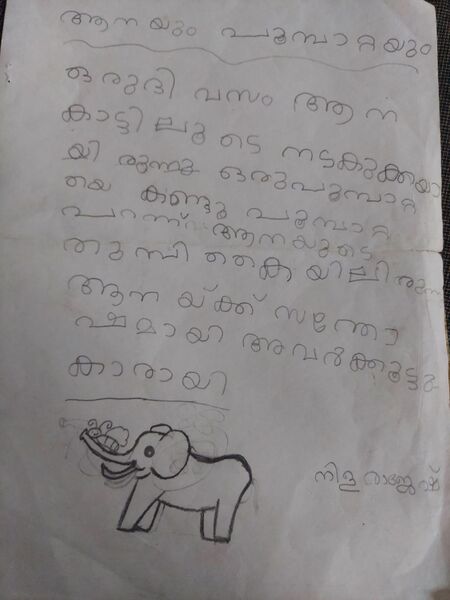 ആനയും പൂമ്പാറ്റയും
ഒരുദിവസം ആന
കാട്ടിലൂടെ നടക്കുകയാ
യിരുന്നു ഒരുപൂമ്പാറ്റ
യെ കണ്ടു പൂമ്പാറ്റ
പറന്ന് ആനയുടെ
തുമ്പികൈയിലിരുന്നു
ആനയ്ക്ക് സന്തോ
ഷമായി അവർകൂട്ടു
കാരായി
നിള രാജേഷ്